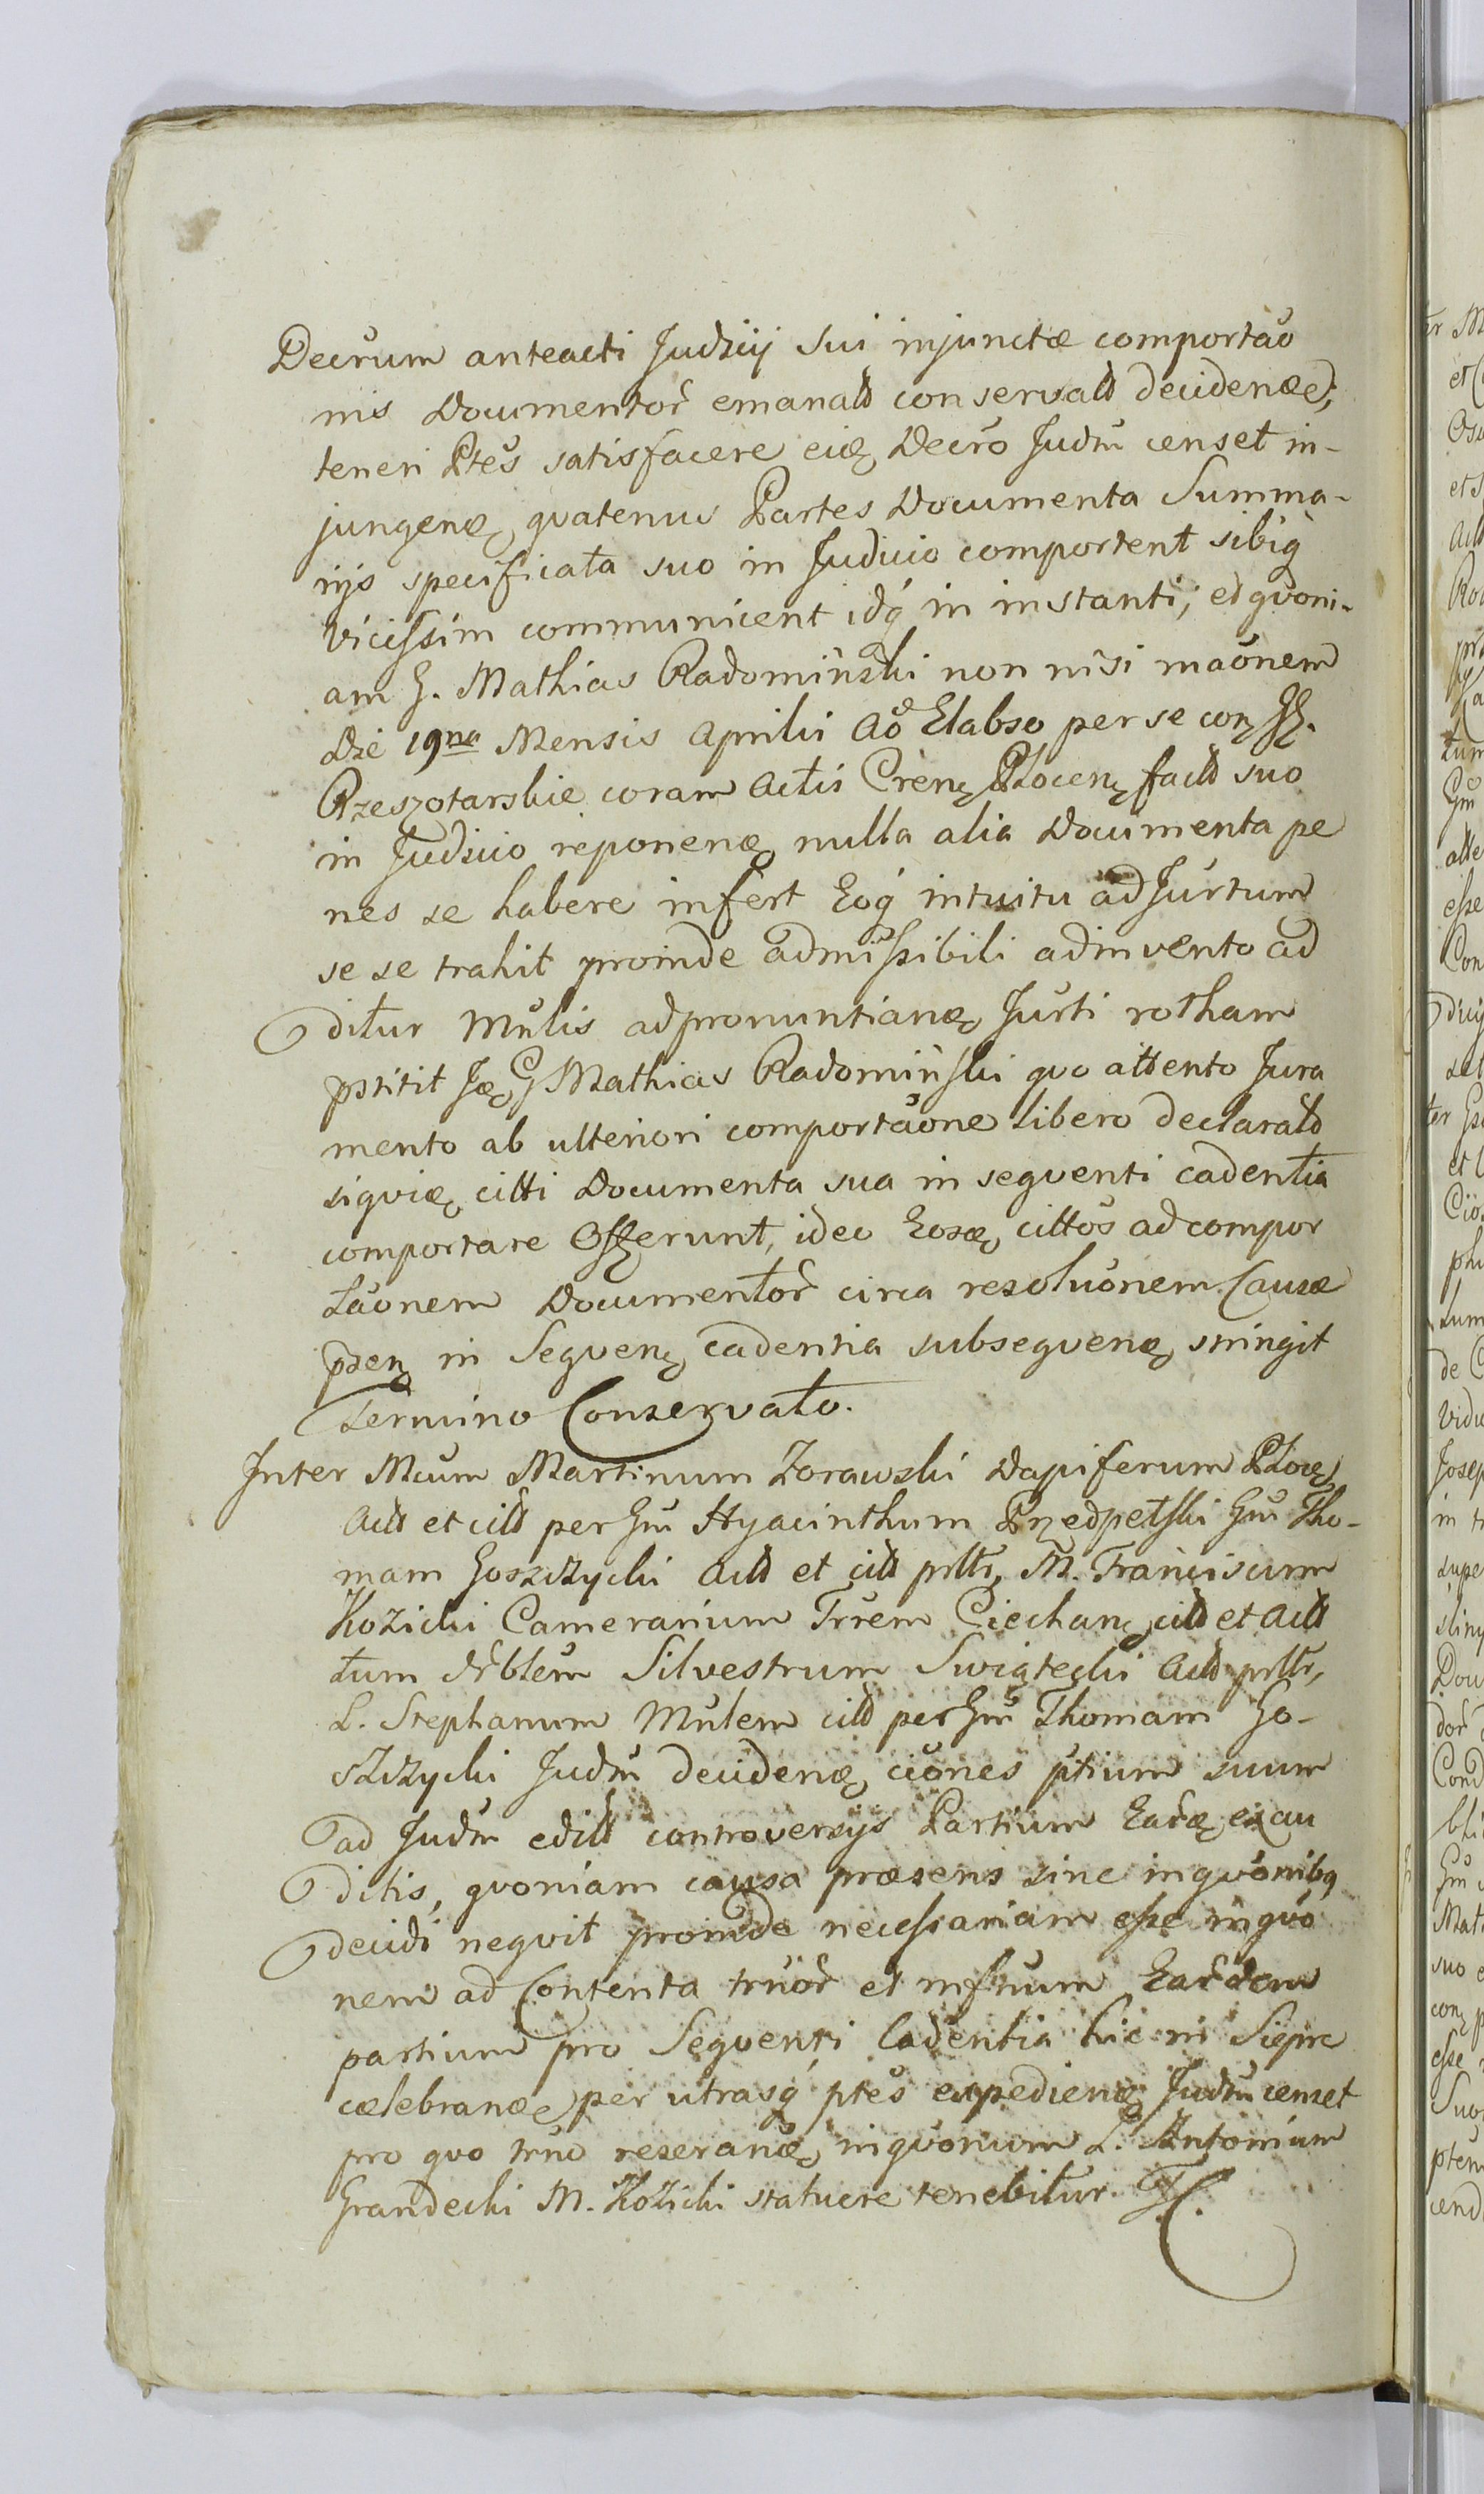 Decrum anteacti Judicij sui injunctæ comportao
nis Documentor emanatt conservatt decidenae,
teneri Ptes satisfacere eid Decro Judm censet in-
jungenae, qvatenus Partes Documenta Summa-
rijs specificata suo in Judicio comportent sibiq
vicissim communicent idq in instanti, et qvoni-
am G. Mathias Radominski non nisi maonem
Die 19na Mensis Aprilii Ao Elabso per se con GG.
Rzeszotarskie coram Actis Cren Plocen factt suo
in Judicio reponenae nulla alia Documenta pe
nes se habere infert Eoq intuitu ad Jurtum
se se trahit proinde admissibili adinvento ad
ditur Mnlis ad pronuntianae Jurti rotham
pstitit Jae G Mathias Radominski qvo attento Jura
mento ab ulteriori comportaone libero declaratt
siqviae citti Documenta sua in seqventi cadentia
comportare Offerunt, ideo Eosae cittos ad compor
taonem Documentor circa resoluonem Causæ
psen in Seqven cadentia subseqvenae stringit
Termino Conservato.
Inter Mcum Martinum Zorawski Dapiferum Ploc
Actt et citt per Gm Hyacinthum Przedpelski Gm Tho-
mam Goszczycki Actt et citt prlttr, M. Franciscum
Kozicki Camerarium Trrem Ciechan citt et Actt
tum Nrblem Silvestrum Swiątecki Actt prlttr,
L. Stephanum Mnlem citt per Gm Thomam Go-
szczycki Judm decidenae ciones ptium suum
ad Judm editt controversijs Partium Earae exau
ditis, qvoniam causa præsens sine inqvonibq
decidi neqvit proinde necessariam esse inqvo
nem ad Contenta truor et mfnum Eardem
partium pro Seqventi Cadentia hic in Siepre
cælebranae per utrasq ptes expedienae Judm censet
pro qvo trno reseranae inqvonum L. Antonium
Grandecki M. Kozicki statuere tenebitur. T.C.